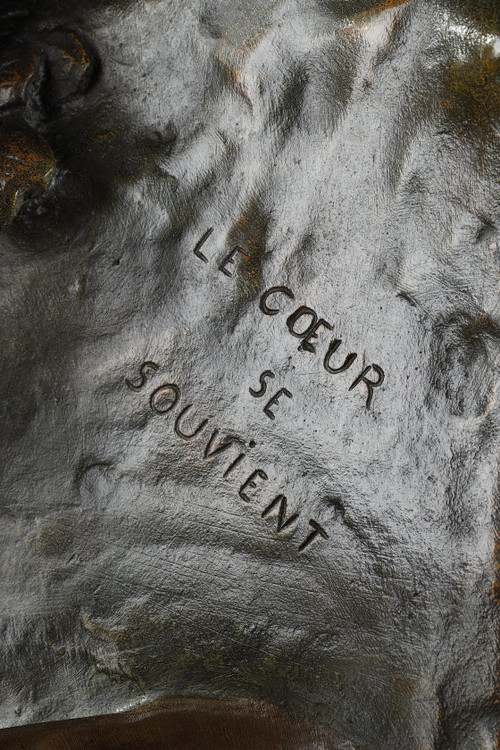 LE
CŒUR
SE
SOUViENT